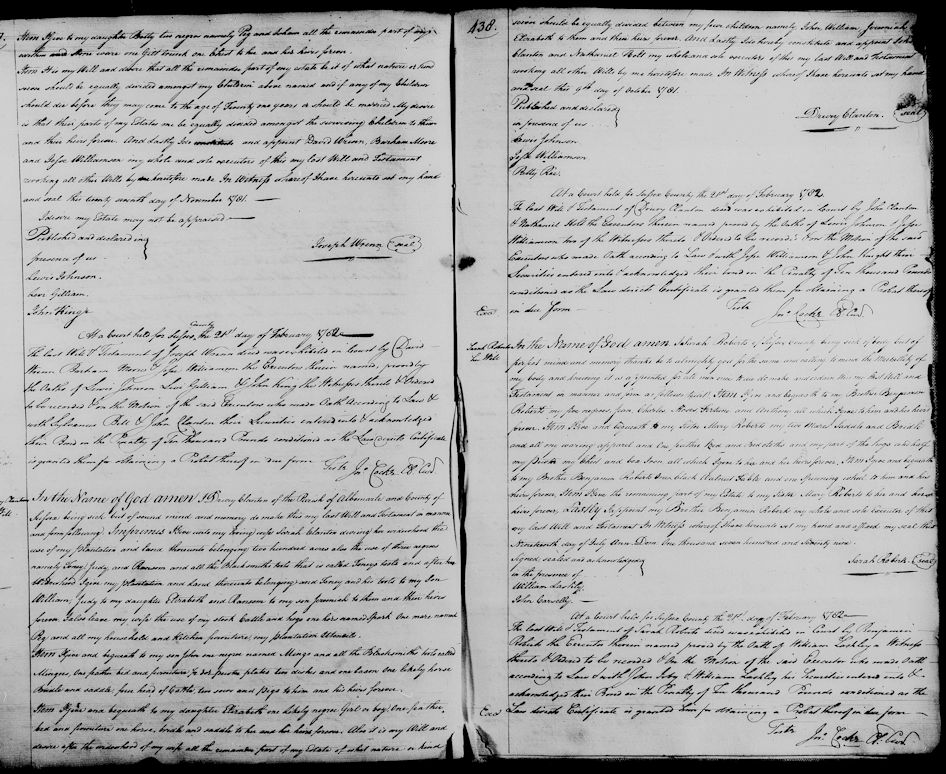 Item I give to my daughter Betty two negroes namely Peg and Isham all the remainder part of my
within and store ware one Gilt trunk one Chest to her and her heirs forever.
Item It is my Will and desire that all the remainder part of my estate be it of what nature or kind
soever should be equally divided amongst my Children above named and if any of my Children
should die before they may come to the age of Twenty one years or should be married My desire
is that their parts of my Estates be equally divided amongst the surviving Children to them
and their heirs forever. And Lastly I do constitute and appoint David Wrenn, Burham Moore
and Jesse Williamson my whole and sole executors of this my last Will and Testament
revoking all other Wills by me heretofore made In Witness whereof I have hereunto set my hand
and seal this Twenty seventh day of November 1781.
I desire my Estate may not be appraised
Published and declared in
presence of us
Joseph Wrenn (seal)
Lewis Johnson.
Levi Gilliam.
John King
At a Court held for Sussex County the 21st day of February 1782
The Last Will & Testament of Joseph Wrenn decd was exhibited in Court by David
Wrenn Burham Moore & Jesse Williamson the Executors therein named, proved by
the Oaths of Lewis Johnson Levi Gilliam & John King the Witnesses thereto & Ordered
to be recorded & on the Motion of the said Executors who made Oath According to Law &
with Sylvanus Bell & John Clanton their Securities entered into & acknowledged
their Bond in the Penalty of Ten thousand Pounds conditioned as the Law directs Certificate
is granted them for obtaining a Probat thereof in due form
Teste Jno. Cocke Cl Cur
In the Name of God amen I Drury Clanton of the Parish of Albemarle and County of
Sussex being sick but of sound mind and memory do make this my last Will and Testament in manner
and form following Imprimis I give unto my loving wife Sarah Clanton during her widowhood the
use of my plantation and land thereunto belonging two hundred acres also the use of three negroes
namely Feney Judy and Ransom and all the Blacksmiths tools that is called Feneys tools and after her
Widowhood I give my plantation and land thereunto belonging and Feney and his tools to my Son
William, Judy to my daughter Elizabeth and Ransom to my son Jeremiah to them and their heirs
forever. I also leave my wife the use of my stock Cattle and hogs one horse named Spark One mare named
Peg and all my household and Kitchen furniture, my plantation Utensils.
Item I give and bequeath to my son John one negroe named Mingo and all the Blacksmiths tools called
Mingoes, One feather bed and furniture, six pewter plates two dishes and one bason One likely horse
Bridle and saddle five head of Cattle two sows and Pigs to him and his heirs forever.
Item I give and bequeath to my daughter Elizabeth one likely negroe Girl or boy One feather
bed and furniture one horse, bridle and saddle to her and her heirs forever. Also it is my Will and
desire after the widowhood of my wife all the remainder part of my Estate of what nature or kind
438.
soever should be equally divided between my four children namely John William Jeremiah &
Elizabeth to them and their heirs forever. And Lastly I do hereby constitute and appoint John
Clanton and Nathaniel Holt my whole and sole executors of this my last Will and Testament
revoking all other Wills by me heretofore made In Witness whereof I have hereunto set my hand
and seal this 9th day of October 1781.
Published and declared
in presence of us
Drury Clanton. (seal)
Lewis Johnson
Jesse Williamson
Betty Rie.
At a Court held for Sussex County the 21st day of February 1782
The Last Will & Testament of Drury Clanton decd was exhibited in Court by John Clanton
& Nathaniel Holt the Executors therein named proved by the Oaths of Lewis Johnson & Jesse
Williamson two of the Witnesses thereto & Ordered to be recorded & on the Motion of the said
Executors who made Oath according to Law & with Jesse Williamson & John Knight their
Securities entered into & acknowledged their bond in the Penalty of Ten thousand Pounds
conditioned as the Law directs Certificate is granted them for obtaining a Probat thereof
in due form
Exd
Teste
Jno. Cocke Cl Cur
Sarah Roberts
her Will
In the Name of God amen Sarah Roberts of Sussex County being weak of body but of
perfect mind and memory thanks be to almighty god for the same and calling to mind the Mortality of
my body and knowing it is appointed for all men once to die do make and ordain this my last Will and
Testament in manner and form as follows (viz) Item I give and bequeath to my Brother Benjamin
Roberts my five negroes, Jean, Charles, and Anthony all which I give to him and his heirs
forever. Item I give and bequeath to my Sister Mary Roberts my two Mares Saddle and Bridle
and all my wearing apparel and One feather Bed and Bedsteads and my part of the hogs
my Chest and box Iron all which I give to her and her heirs forever, Item I give and bequeath
to my Brother Benjamin Roberts One black Walnut Table and one Spinning wheel to him and his
heirs forever, Item I leave the remaining part of my Estate to my Sister Mary Roberts to her and her
heirs forever, Lastly I appoint my Brother Benjamin Roberts my whole and sole Executor of this
my last Will and Testament In Witness whereof I have hereunto set my hand and affixed my seal this
Nineteenth day of July Ann. Dom One thousand seven hundred and Seventy nine.
Signed sealed and acknowledged
in the presence of
Sarah Roberts. (seal)
William Lashly.
John
At a Court held for Sussex County the 21st day of February 1782
The Last Will & Testament of Sarah Roberts decd was exhibited in Court by Benjamin
Roberts the Executor therein named proved by the Oath of William Lashley a Witness
thereto & Ordered to be recorded & On the Motion of the said Executor who made Oath
according to Law & with John Irby & William Lashley his Securities entered into &
acknowledged their Bond in the Penalty of Ten thousand Pounds conditioned as the
Law directs Certificate is granted him for obtaining a Probat thereof in due form
Exd
Teste
Jno. Cocke Cl. Cur.